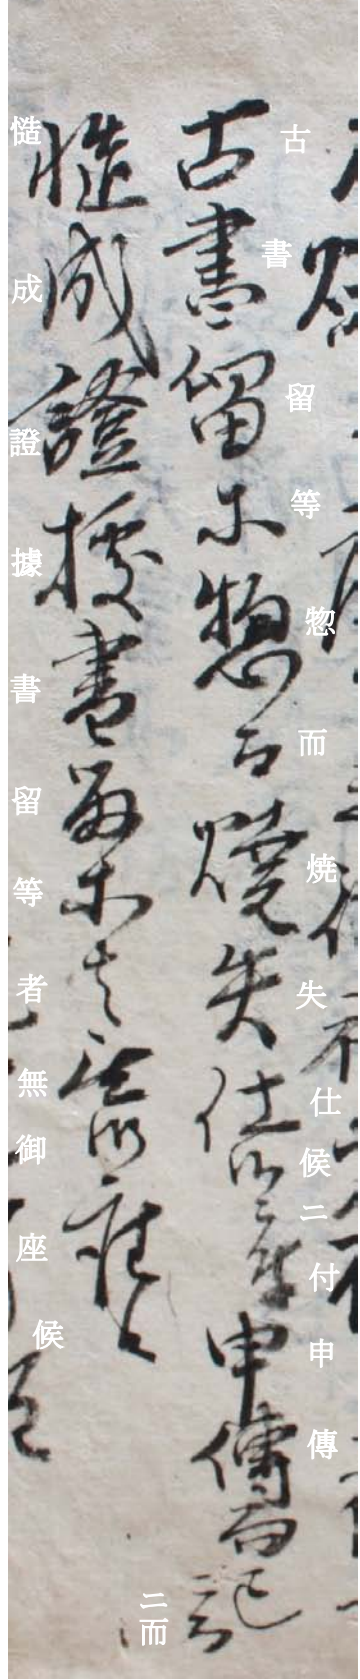 古書留等惣而焼失仕候ニ付申傳ニ而
慥成證據書留等者無御座候